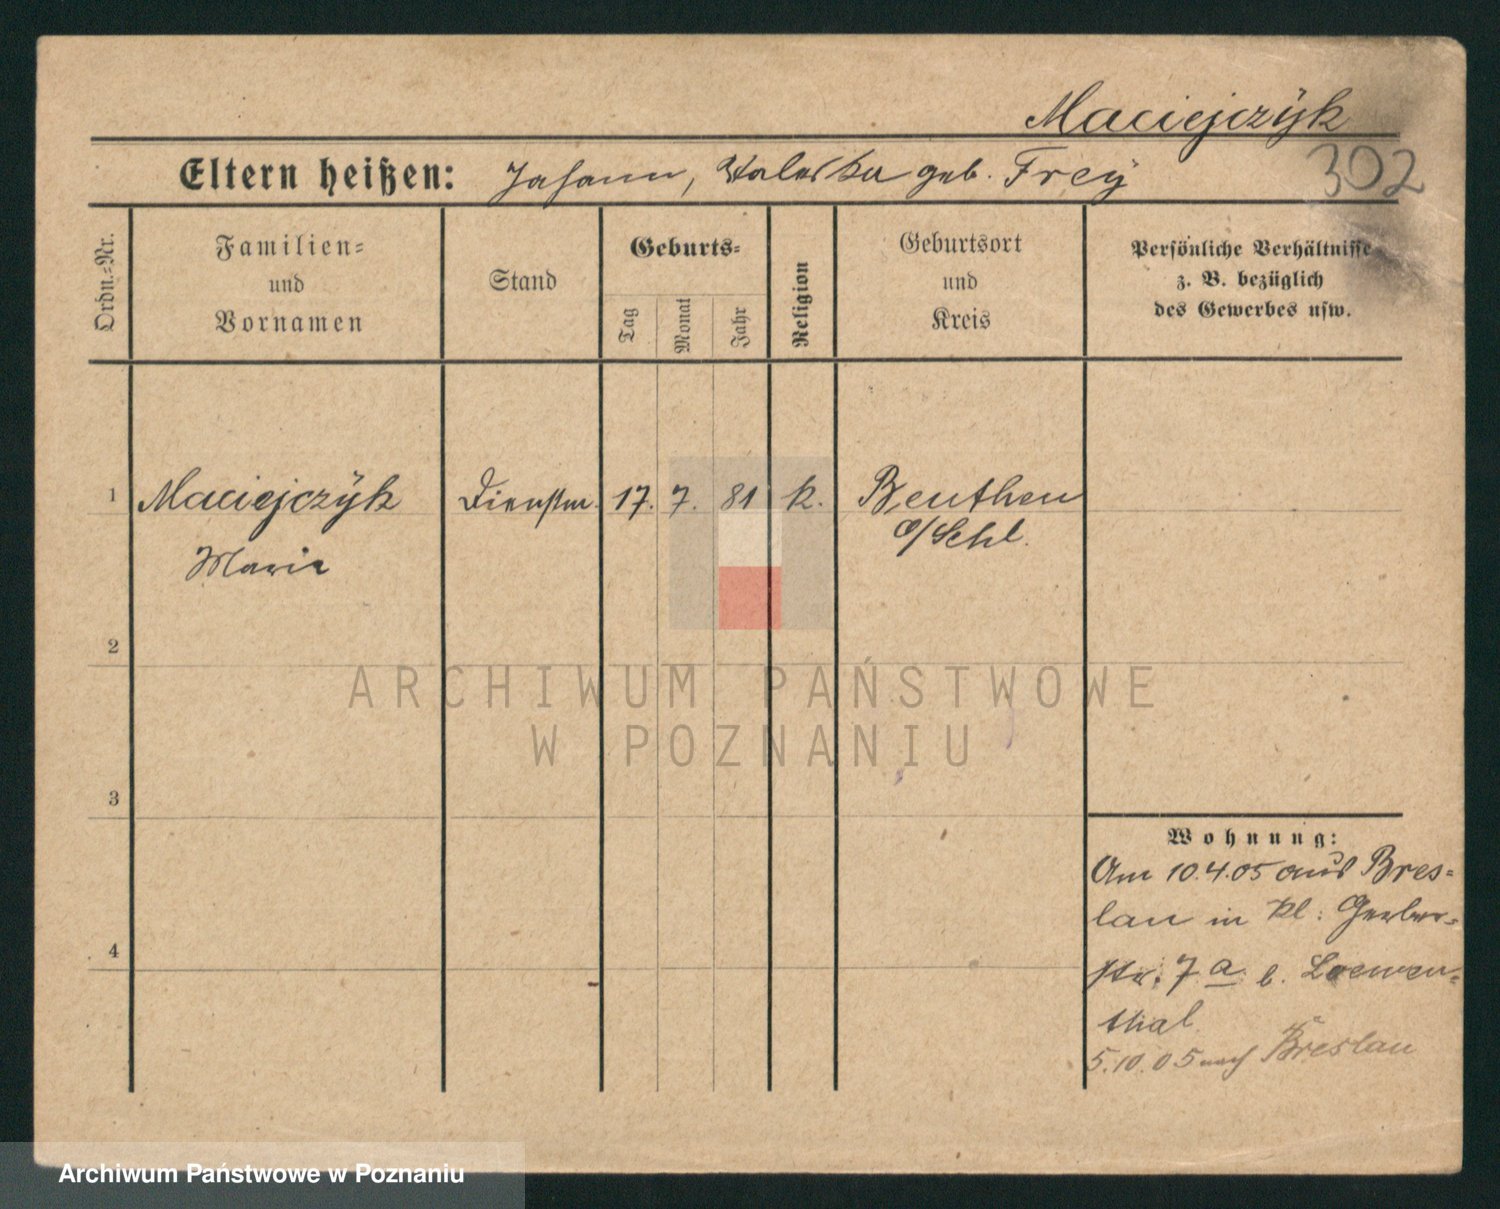 Maciejczÿk
302
Eltern heißen: Johann, Valeska geb. Freÿ
Ordn.=Nr.
Familien=
und
Vornamen
Stand
Geburts=
Tag
Monat
Jahr
Religion
Geburtsort
und
Kreis
Persönliche Verhältnisse
z. B. bezüglich
des Gewerbes usw.
1 Maciejczÿk Dienstm. 17. 7. 81 k. Beuthen
o/Schl.
Marie
2
ARCHIWUM PAŃSTWOWE
W POZNANIU
3
Wohnung:
Am 10.4.05 aus Bres=
lau in kl: Gerber=
4
str. 7 a b. Loewen=
thal
5.10.05 nach Breslau
Archiwum Państwowe w Poznaniu